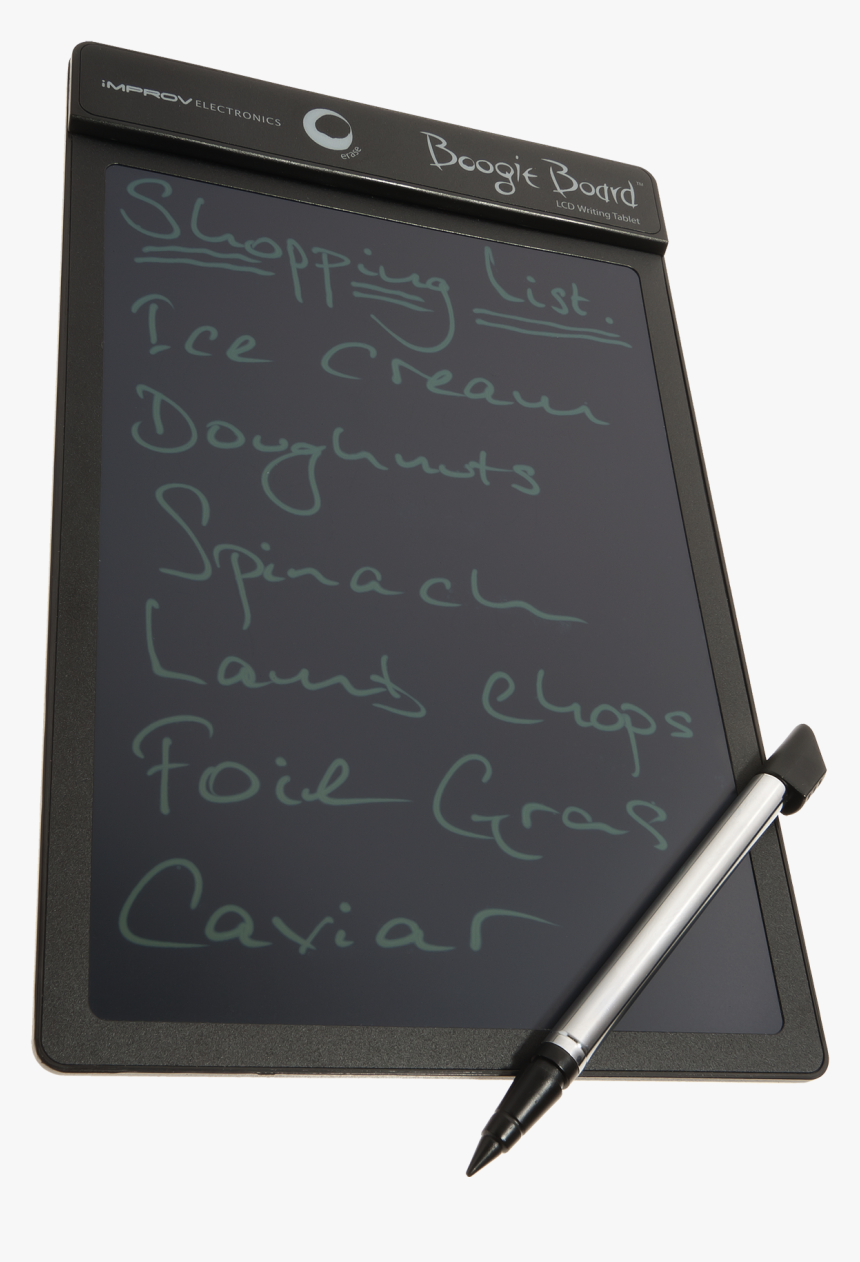 iMPROV ELECTRONICS
erase
Boogie Board™
LCD Writing Tablet
Shopping List.
Ice Cream
Doughnuts
Spinach
Lamb Chops
Foie Gras
Caviar